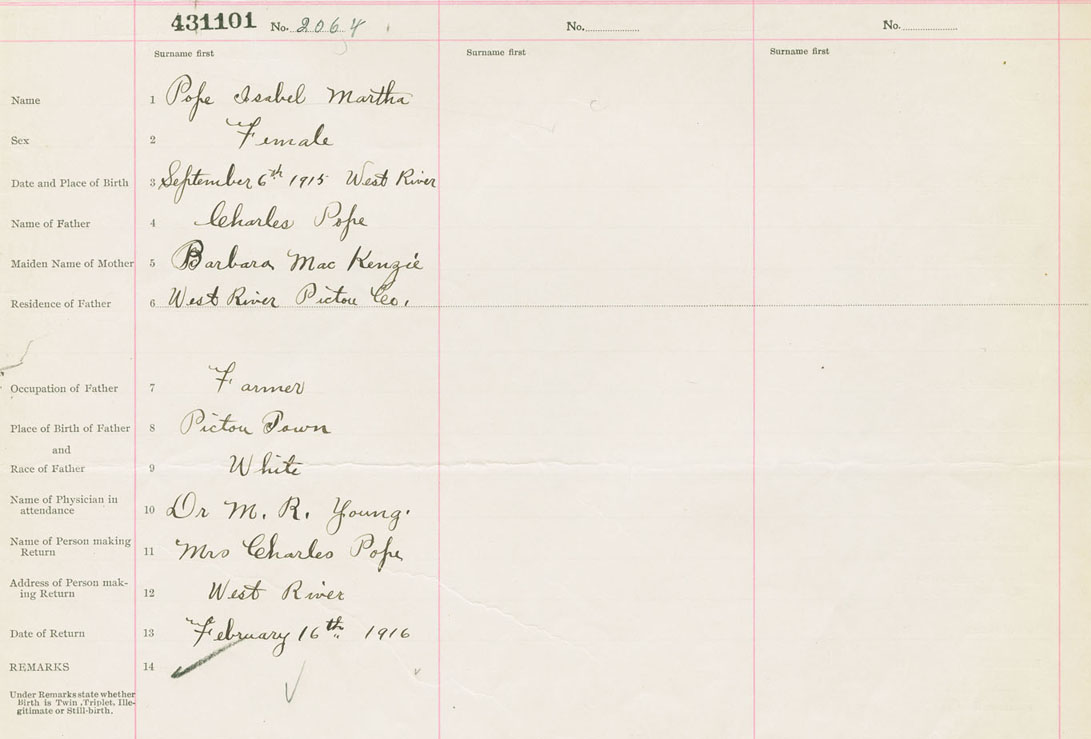 431101 No. 2064 No. No.
Surname first Surname first Surname first
Name 1 Pope Isabel Martha
Sex 2 Female
Date and Place of Birth 3 September 6th 1915 West River
Name of Father 4 Charles Pope
Maiden Name of Mother 5 Barbara MacKenzie
Residence of Father 6 West River Pictou Co.
Occupation of Father 7 Farmer
Place of Birth of Father 8 Pictou Town
and
Race of Father 9 White
Name of Physician in
attendance 10 Dr M. R. Young.
Name of Person making
Return 11 Mrs Charles Pope
Address of Person mak-
ing Return 12 West River
Date of Return 13 February 16th 1916
REMARKS 14
Under Remarks state whether
Birth is Twin, Triplet, Ille-
gitimate or Still-birth.